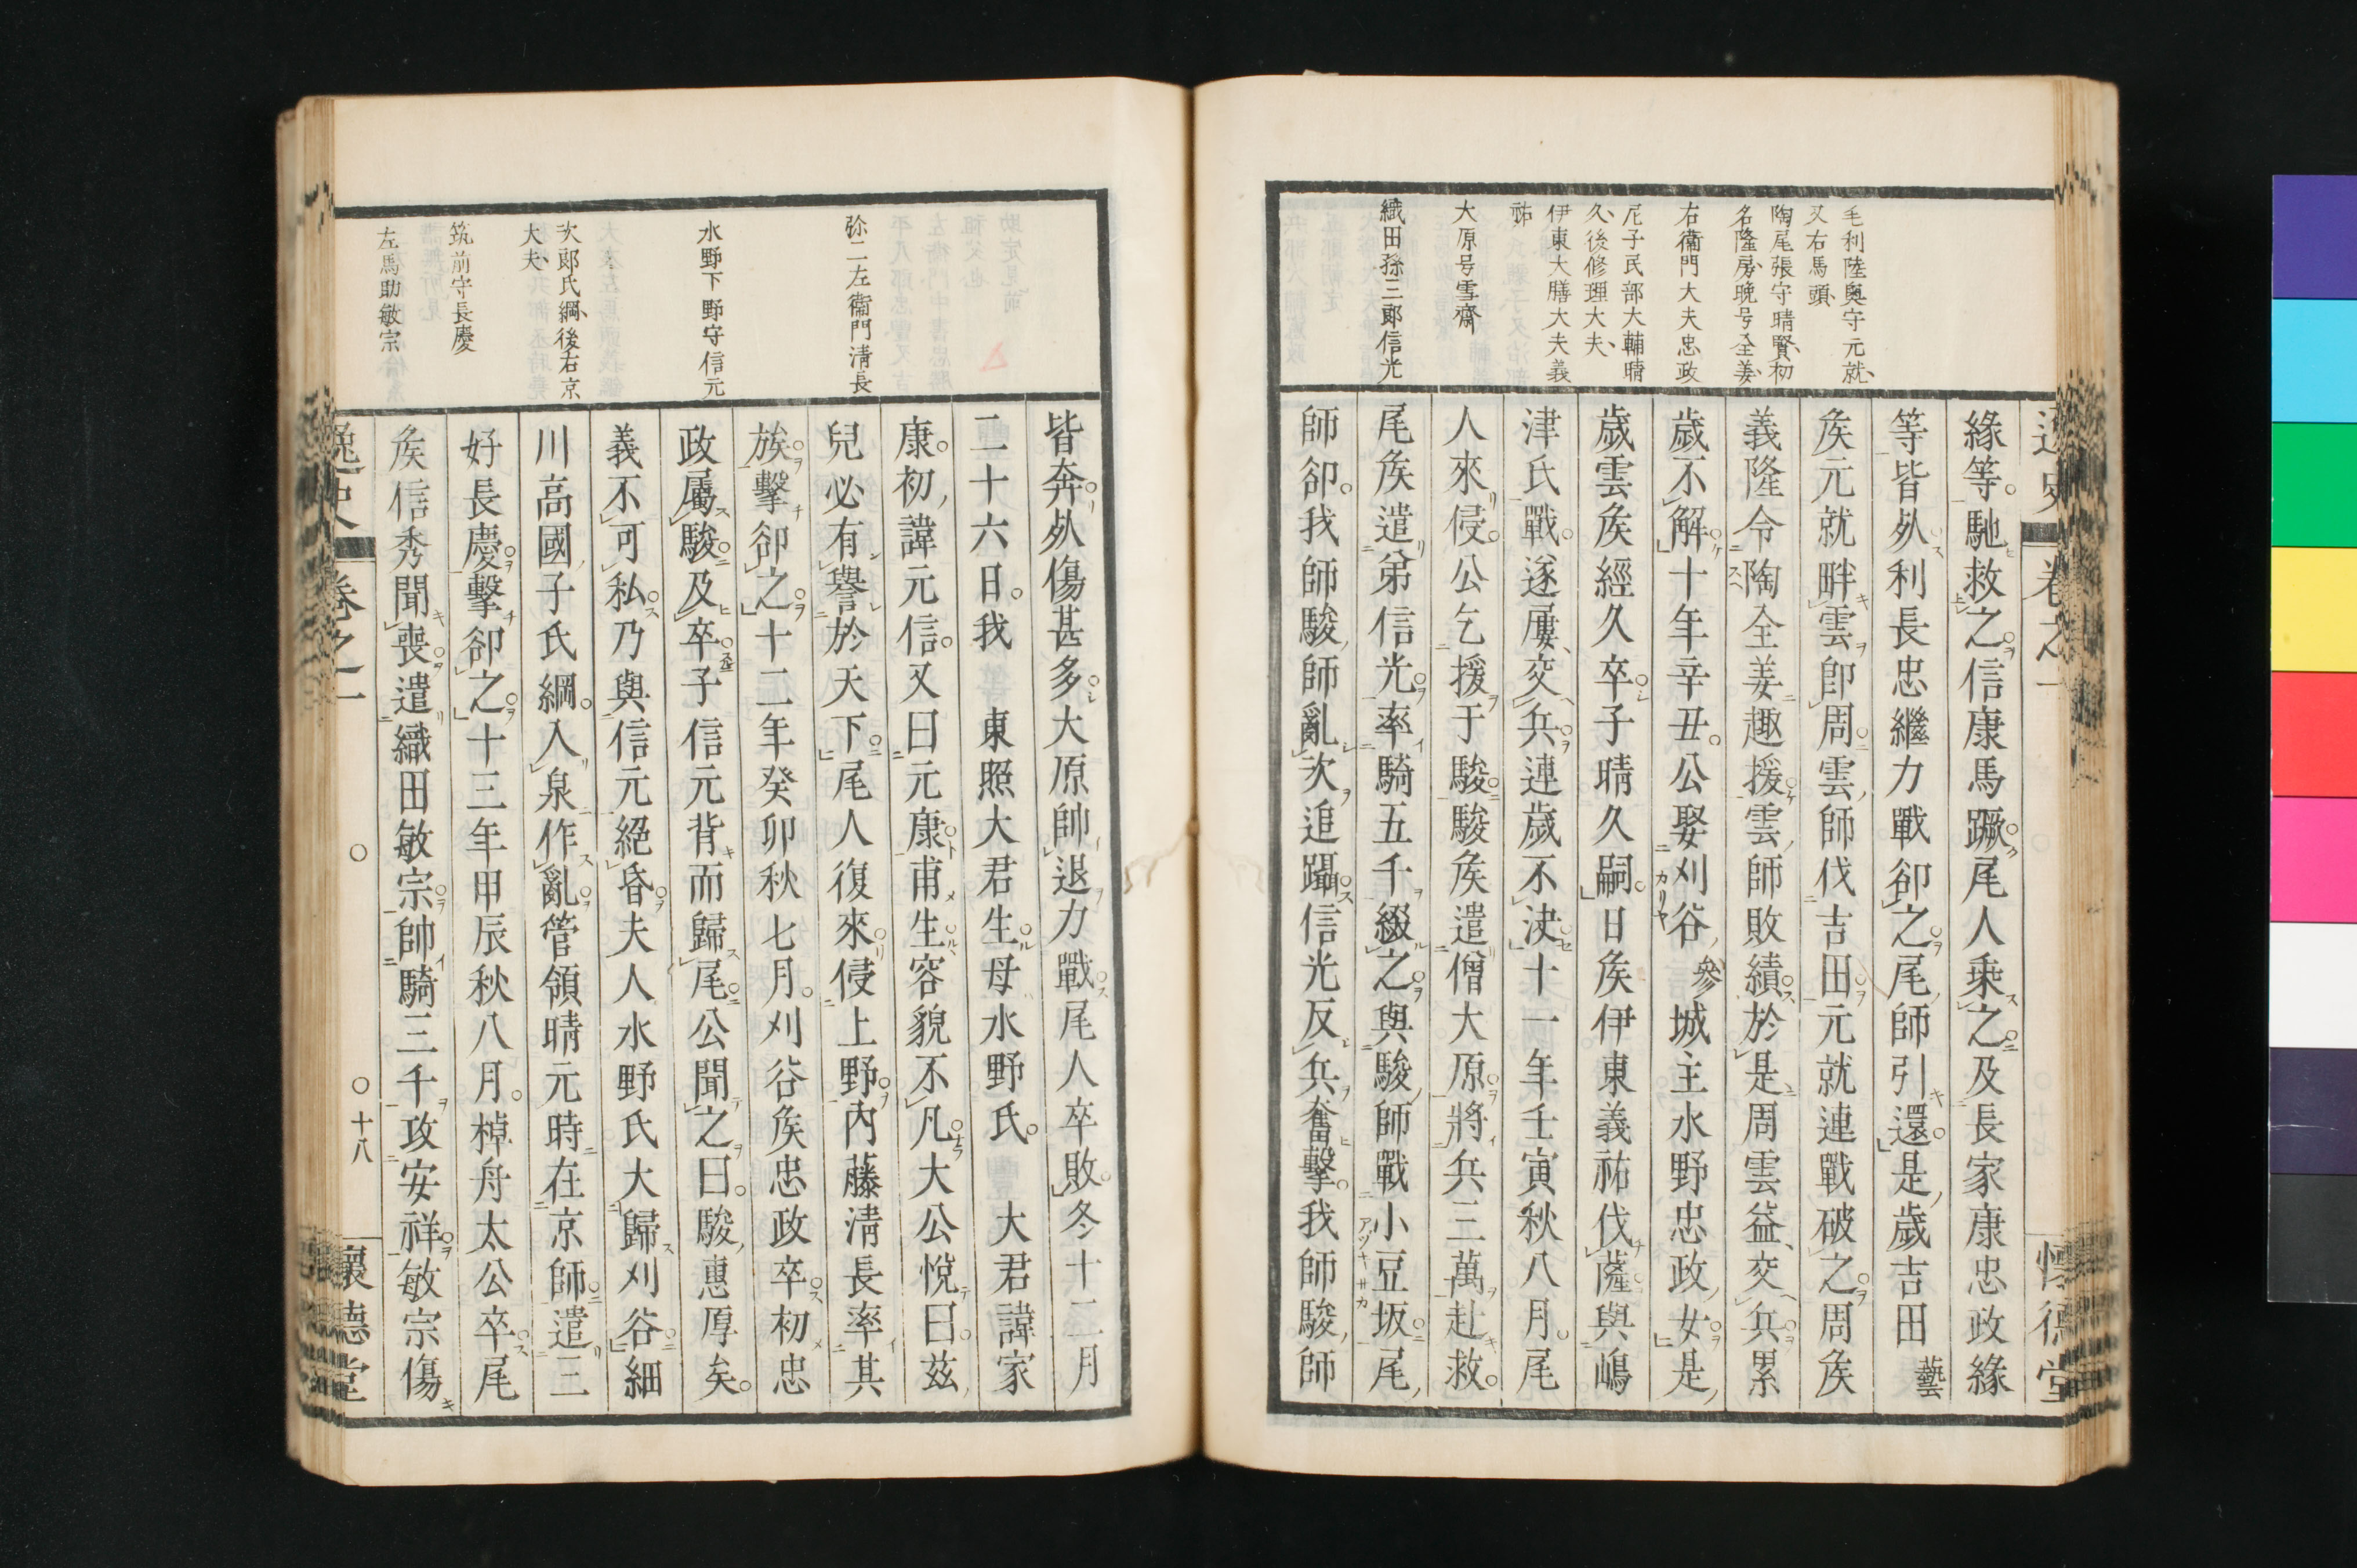 毛利陸奧守元就、
又右馬頭、
陶尾張守晴賢、初
名隆房、晩号全姜、
右衞門大夫忠政
尼子民部大輔晴
久、後修理大夫、
伊東大膳大夫義
祐
大原号雪齋
織田孫三郎信光
逸史
卷之一
懷德堂
緣等馳救之信康馬蹶尾人乘之及長家康忠政緣
等皆死利長忠繼力戰卻之尾師引還是歲吉田藝
矦元就畔雲卽周雲師伐吉田元就連戰破之周矦
義隆令陶全姜趣援雲師敗績於是周雲益交兵累
歲不解十年辛丑公娶刈谷參城主水野忠政女是
歲雲矦經久卒子晴久嗣日矦伊東義祐伐薩與嶋
津氏戰逐屢交兵連歲不決十一年壬寅秋八月尾
人來侵公乞援于駿駿矦遣僧大原將兵三萬赴救
尾矦遣弟信光率騎五千綴之與駿師戰小豆坂尾
師卻我師駿師亂次追躡信光反兵奮擊我師駿師
弥二左衞門淸長
水野下野守信元
次郎氏綱、後右京
大夫、
筑前守長慶
左馬助敏宗
皆奔死傷甚多大原帥退力戰尾人卒敗冬十二月
二十六日我 東照大君生母水野氏 大君諱家
康初諱元信又曰元康甫生容貌不凡大公悅曰茲
兒必有譽於天下尾人復來侵上野內藤淸長率其
族擊卻之十二年癸卯秋七月刈谷矦忠政卒初忠
政屬駿及卒子信元背而歸尾公聞之曰駿惠厚矣
義不可私乃與信元絕昏夫人水野氏大歸刈谷細
川高國子氏綱入泉作亂管領晴元時在京師遣三
好長慶擊卻之十三年甲辰秋八月棹舟太公卒尾
矦信秀聞喪遣織田敏宗帥騎三千攻安祥敏宗傷
逸史
卷之一
十八
懷德堂